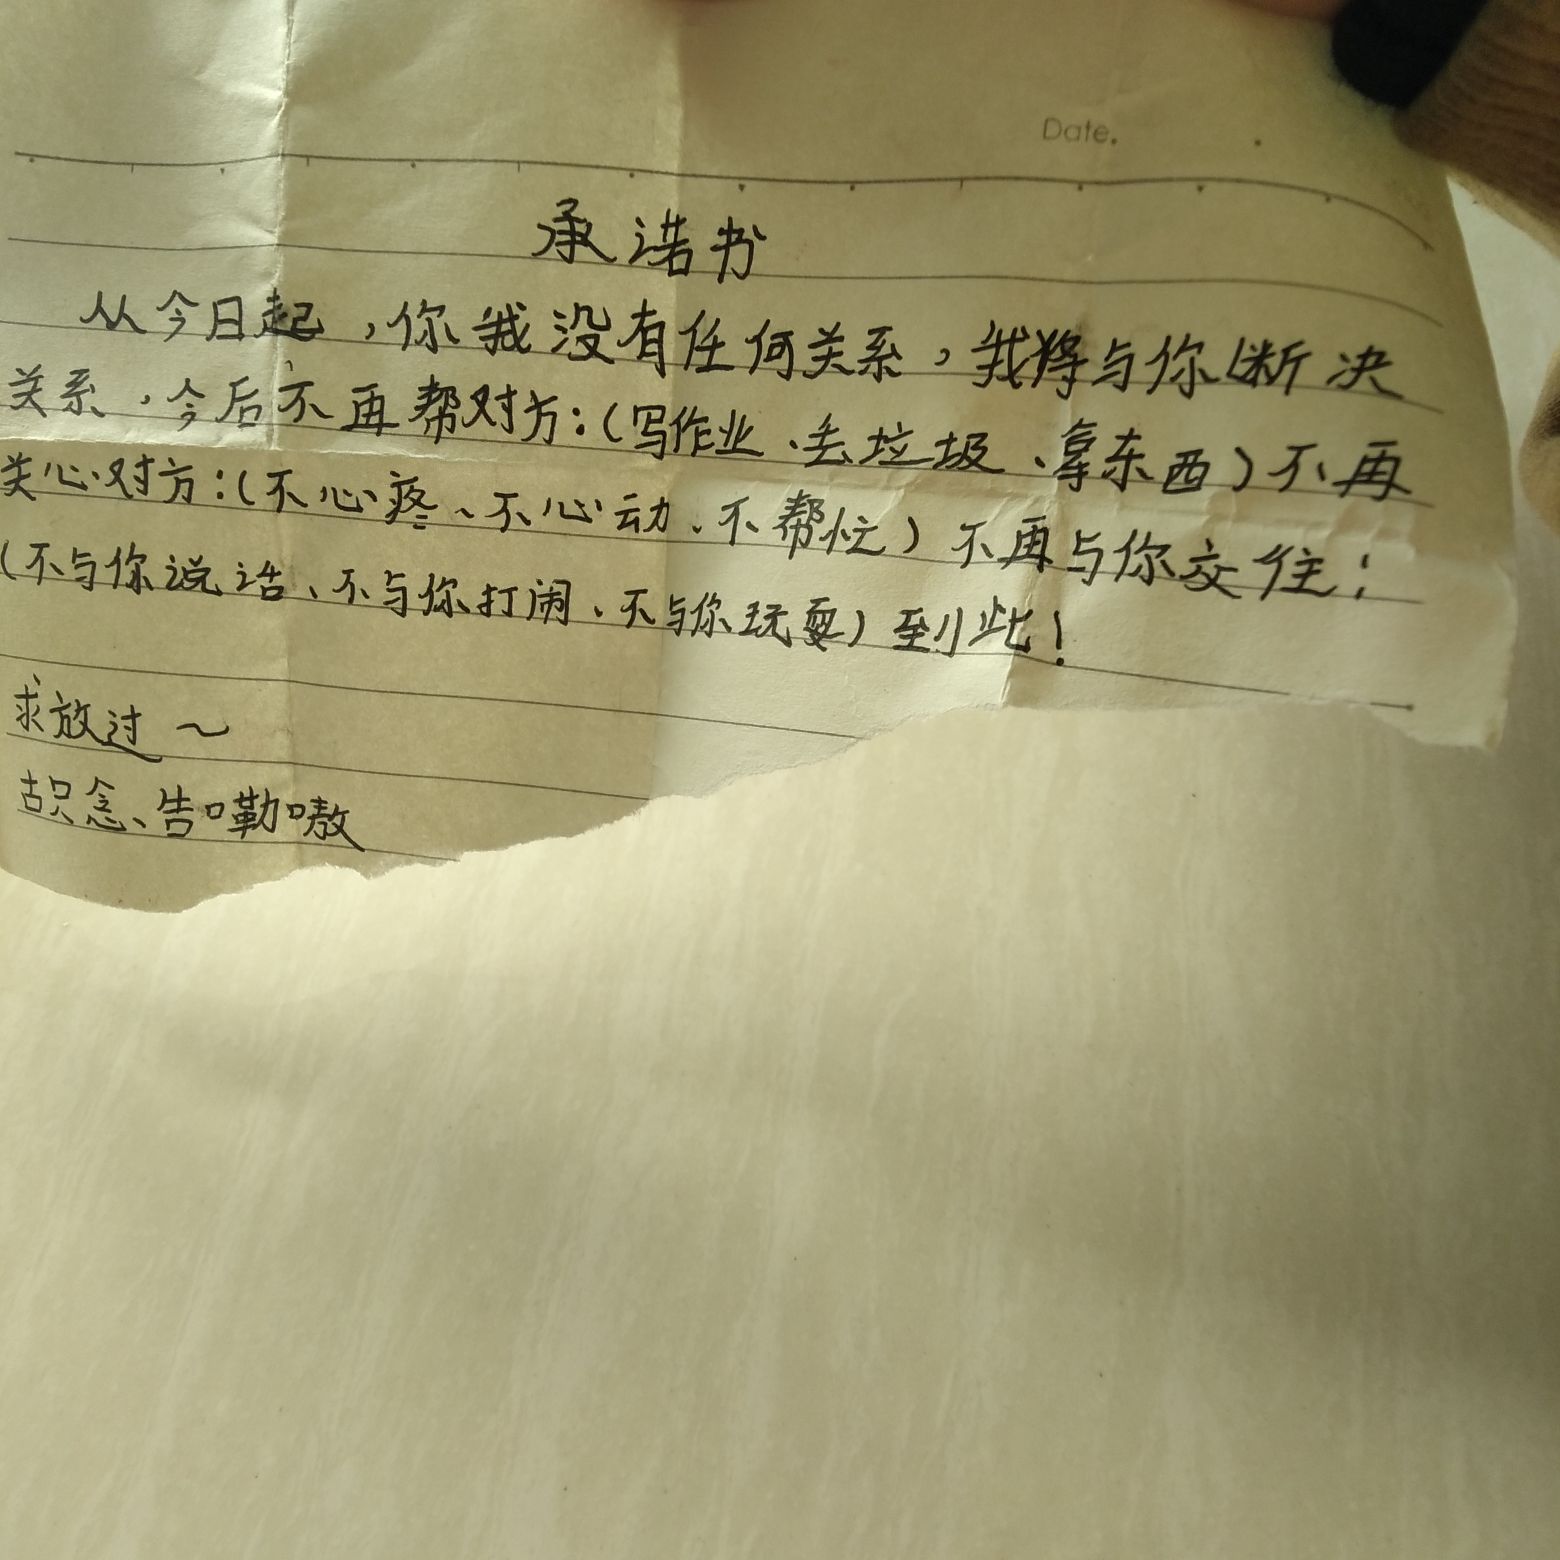 Date.
承诺书
从今日起，你我没有任何关系，我将与你断决
关系，今后不再帮对方：（写作业、丢垃圾、拿东西）不再
关心对方：（不心疼、不心动、不帮忙）不再与你交往：
（不与你说话、不与你打闹、不与你玩耍）到此！
求放过～
念、告嘞嗷